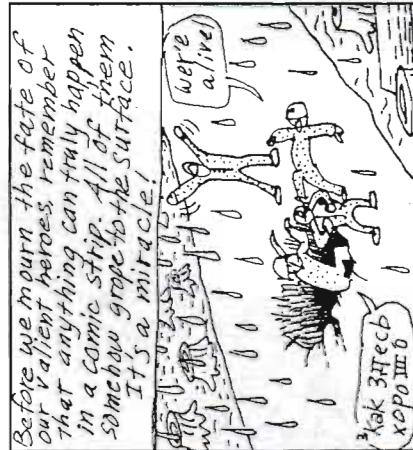 Before we mourn the fate of
our valient heroes, remember
that anything can truly happen
in a comic strip. All of them
somehow grope to the surface.
It's a miracle!
we're
alive!
³Как здесь
хороШо